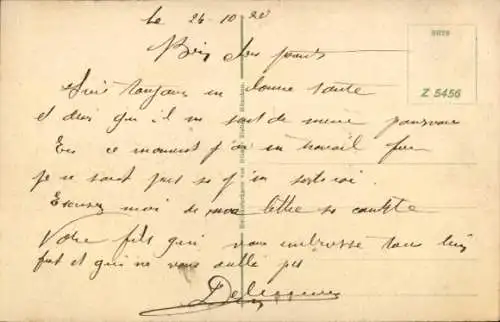 le 26-10-20
Bien chers parents
Suis toujours en bonne santé
et desir qu'il en soit de meme pour vous
En ce moment j'ai un travail fou
je ne sait pas si j'en sortirai
Excusez moi de ma lettre si courte
Votre fils qui vous embrasse tous bien
fort et qui ne vous oublie pas
8075
Z 5456